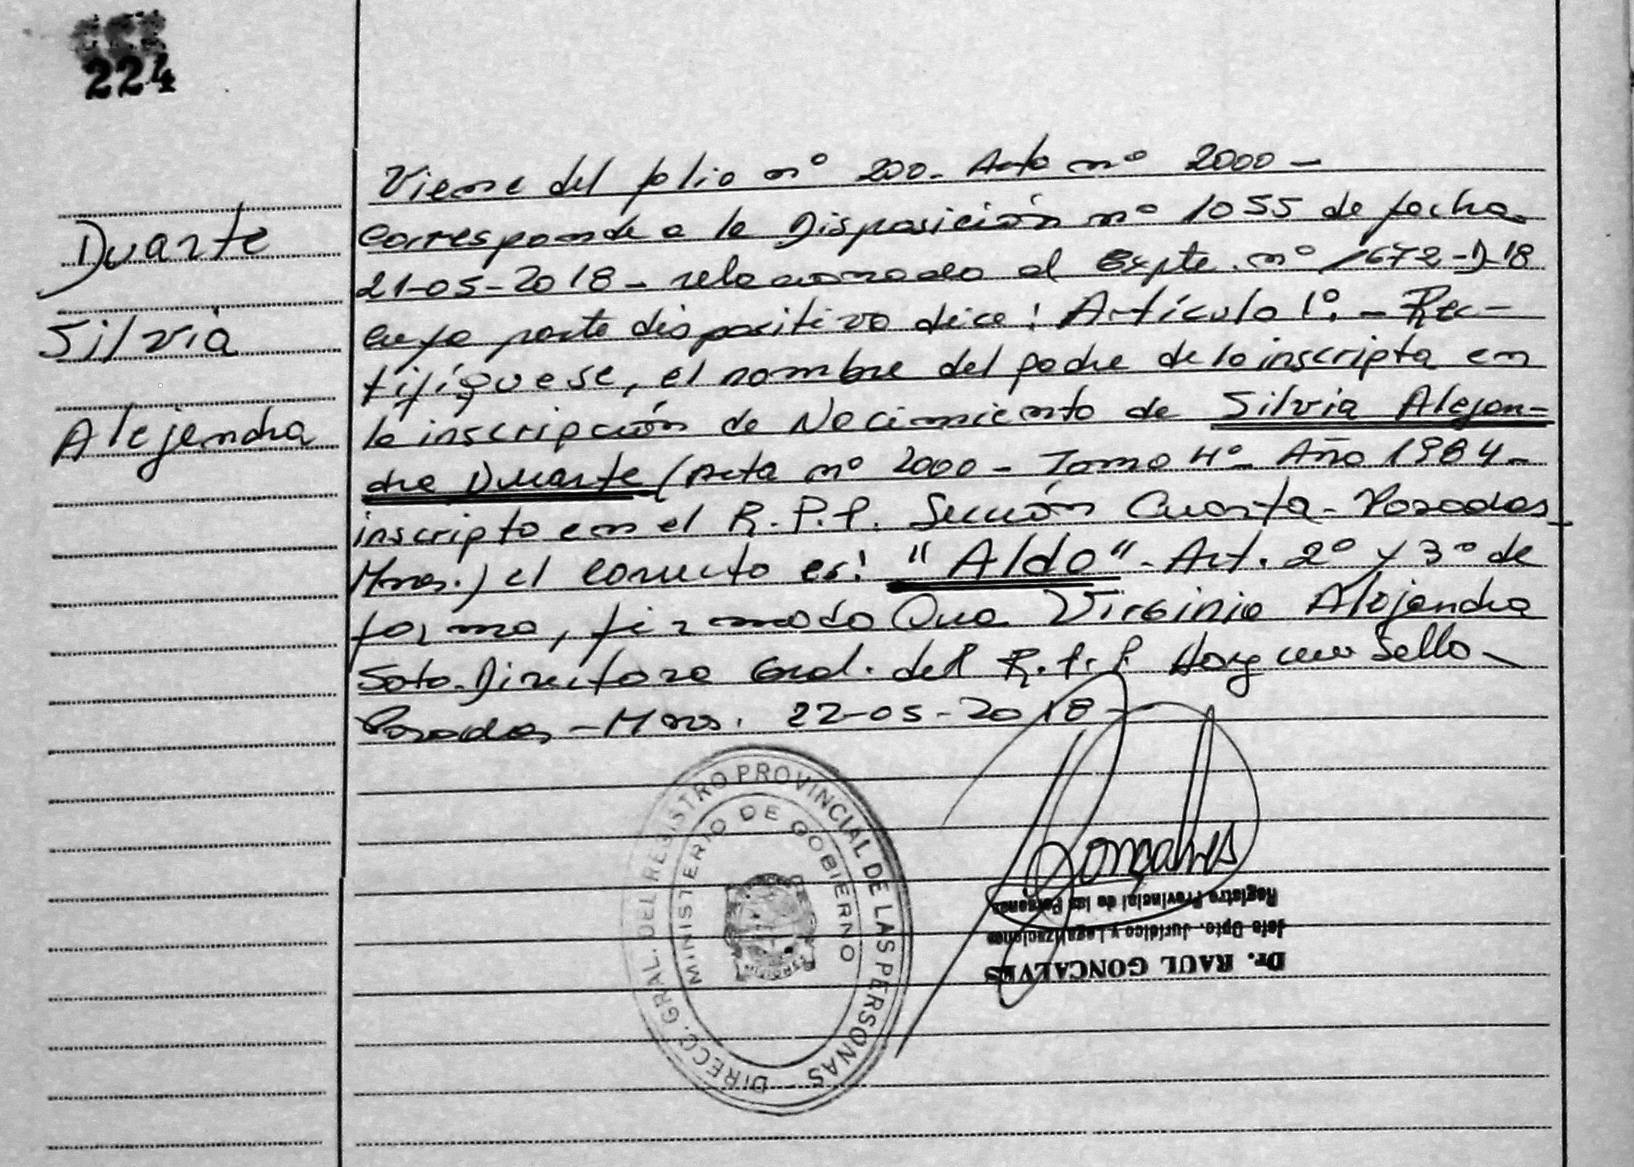 224
Duarte
Silvia
Alejandra
Viene del folio nº 200- Acta nº 2000-
corresponde a la Disposición nº 1055 de fecha
21-05-2018- relacionado al Expte. nº 1672-D-18
cuya parte dispositiva dice: Artículo 1º.- Rec-
tifíquese, el nombre del padre de la inscripta en
la inscripción de Nacimiento de Silvia Alejan-
dra Duarte (Acta nº 2000- Tomo 4º- Año 1984-
inscripta en el R.P.P. Sección Cuarta- Posadas
Mnes.) el correcto es: "Aldo"- Art. 2º y 3º de
forma, firmado Virginia Alejandra
Soto-Directora Gral. del R.P.P Hay un Sello-
Posadas-Mnes. 22-05-2018-
DIRECC. GRAL. DEL REGISTRO PROVINCIAL DE LAS PERSONAS
MINISTERIO DE GOBIERNO
Goncalves
Dr. RAUL GONCALVES
Jefe Dpto. Jurídico y Legalizaciones
Registro Provincial de las Personas